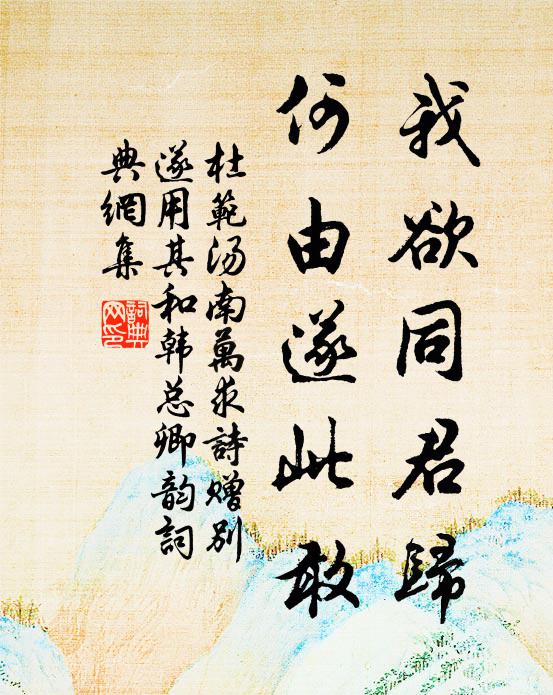 我欲同君歸
何由遂此敢
杜範湯南萬求詩贈別
遂用其和韩总卿韵詞
典網集
詞典
网印